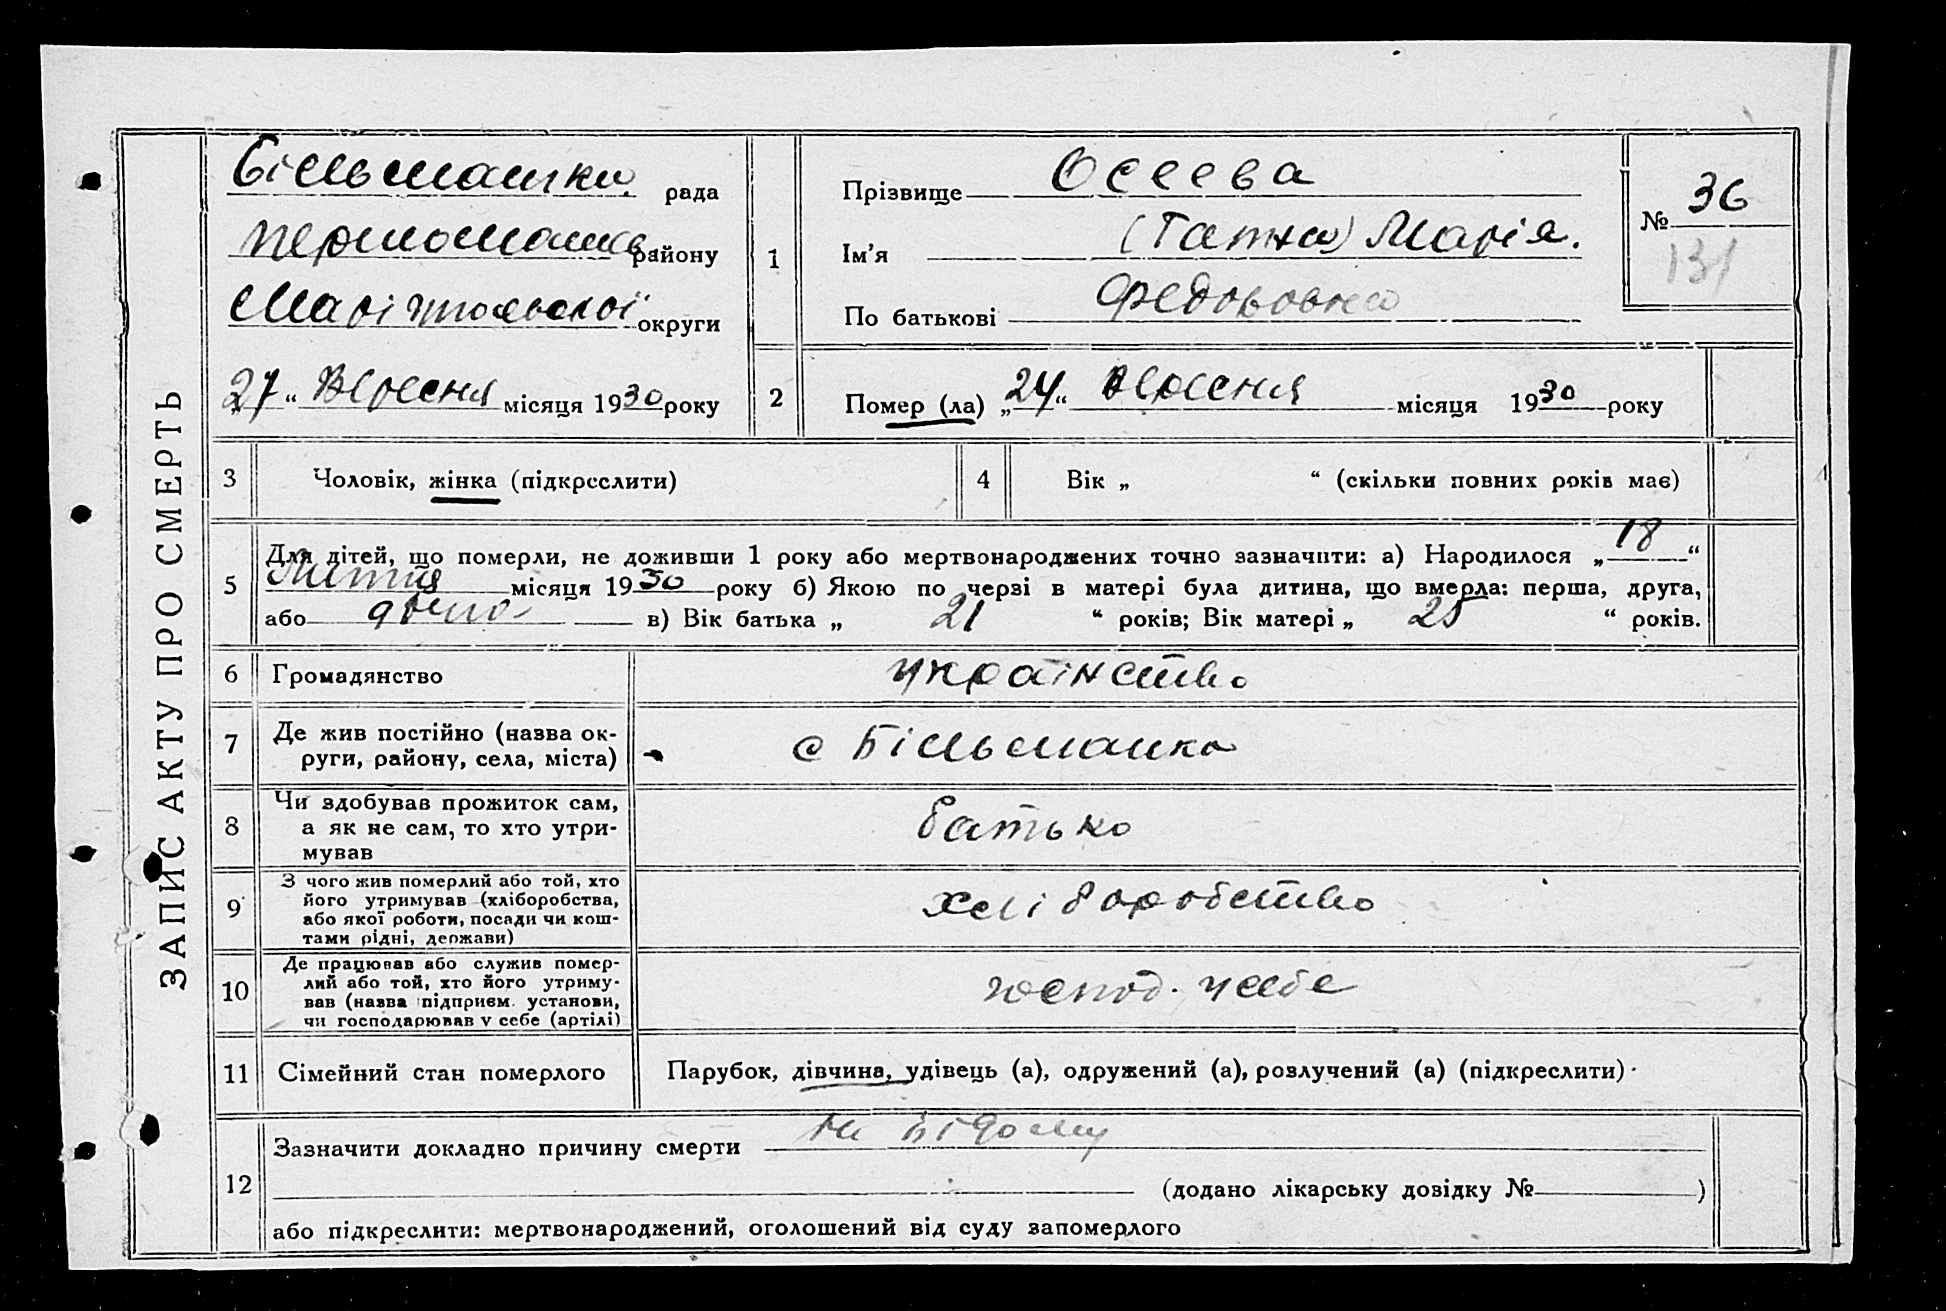 ЗАПИС АКТУ ПРО СМЕРТЬ
Більманка рада
Першотравнев району
Маріупольської округи
27 “ Вересня місяця 1930 року
1
Прізвище Осеева
Ім’я (Гапка) Марія.
По батькові Федоровна
№ 36
131
2 Помер (ла) „24“ Вересня місяця 1930 року
3 Чоловік, жінка (підкреслити)
4 Вік „ “ (скільки повних років має)
5 Для дітей, що померли, не доживши 1 року або мертвонароджених точно зазначити: а) Народилося „18“
Липня місяця 1930 року б) Якою по черзі в матері була дитина, що вмерла: перша, друга,
або в) Вік батька „ 21 “ років; Вік матері „ 25 “ років.
6 Громадянство українство
7 Де жив постійно (назва ок-
руги, району, села, міста) с Більманка
8 Чи здобував прожиток сам,
а як не сам, то хто утри-
мував
батько
9 З чого жив померлий або той, хто
його утримував (хліборобства,
або якої роботи, посади чи кош-
тами рідні, держави)
хліборобство
10 Де працював або служив помер-
лий або той, хто його утриму-
вав (назва підприєм. установи,
чи господарював у себе (артілі)
господ. у себе
11 Сімейний стан померлого Парубок, дівчина, удівець (а), одружений (а), розлучений (а) (підкреслити)
12 Зазначити докладно причину смерти не відому
(додано лікарську довідку № )
або підкреслити: мертвонароджений, оголошений від суду запомерлого